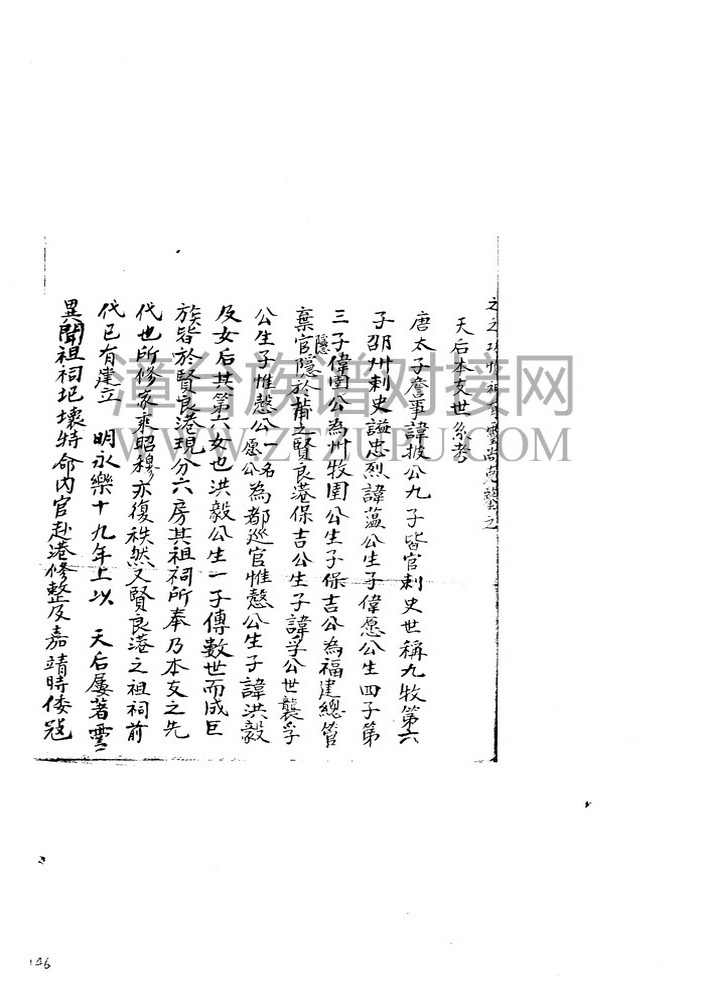 天后本支世系考
唐太子詹事諱披公九子皆官刺史世稱九牧第六
子邵州刺史謚忠烈諱蘊公生子偉愿公生四子第
三子偉圉公為州牧圉公生子保吉公為福建總管
隱
棄官隱於莆之賢良港保吉公生子諱孚公世襲孚
公生子惟慤公一名愿公為都巡官惟慤公生子諱洪毅
及女后其第六女也洪毅公生一子傳數世而成巨
族皆於賢良港現分六房其祖祠所奉乃本支之先
代也所修家乘昭穆亦復秩然又賢良港之祖祠前
代已有建立 明永樂十九年上以 天后屢著靈
異聞祖祠圮壞特命內官赴港修整及嘉靖時倭寇
漳台族譜对接网
WWW.ZTZUPU.COM
146